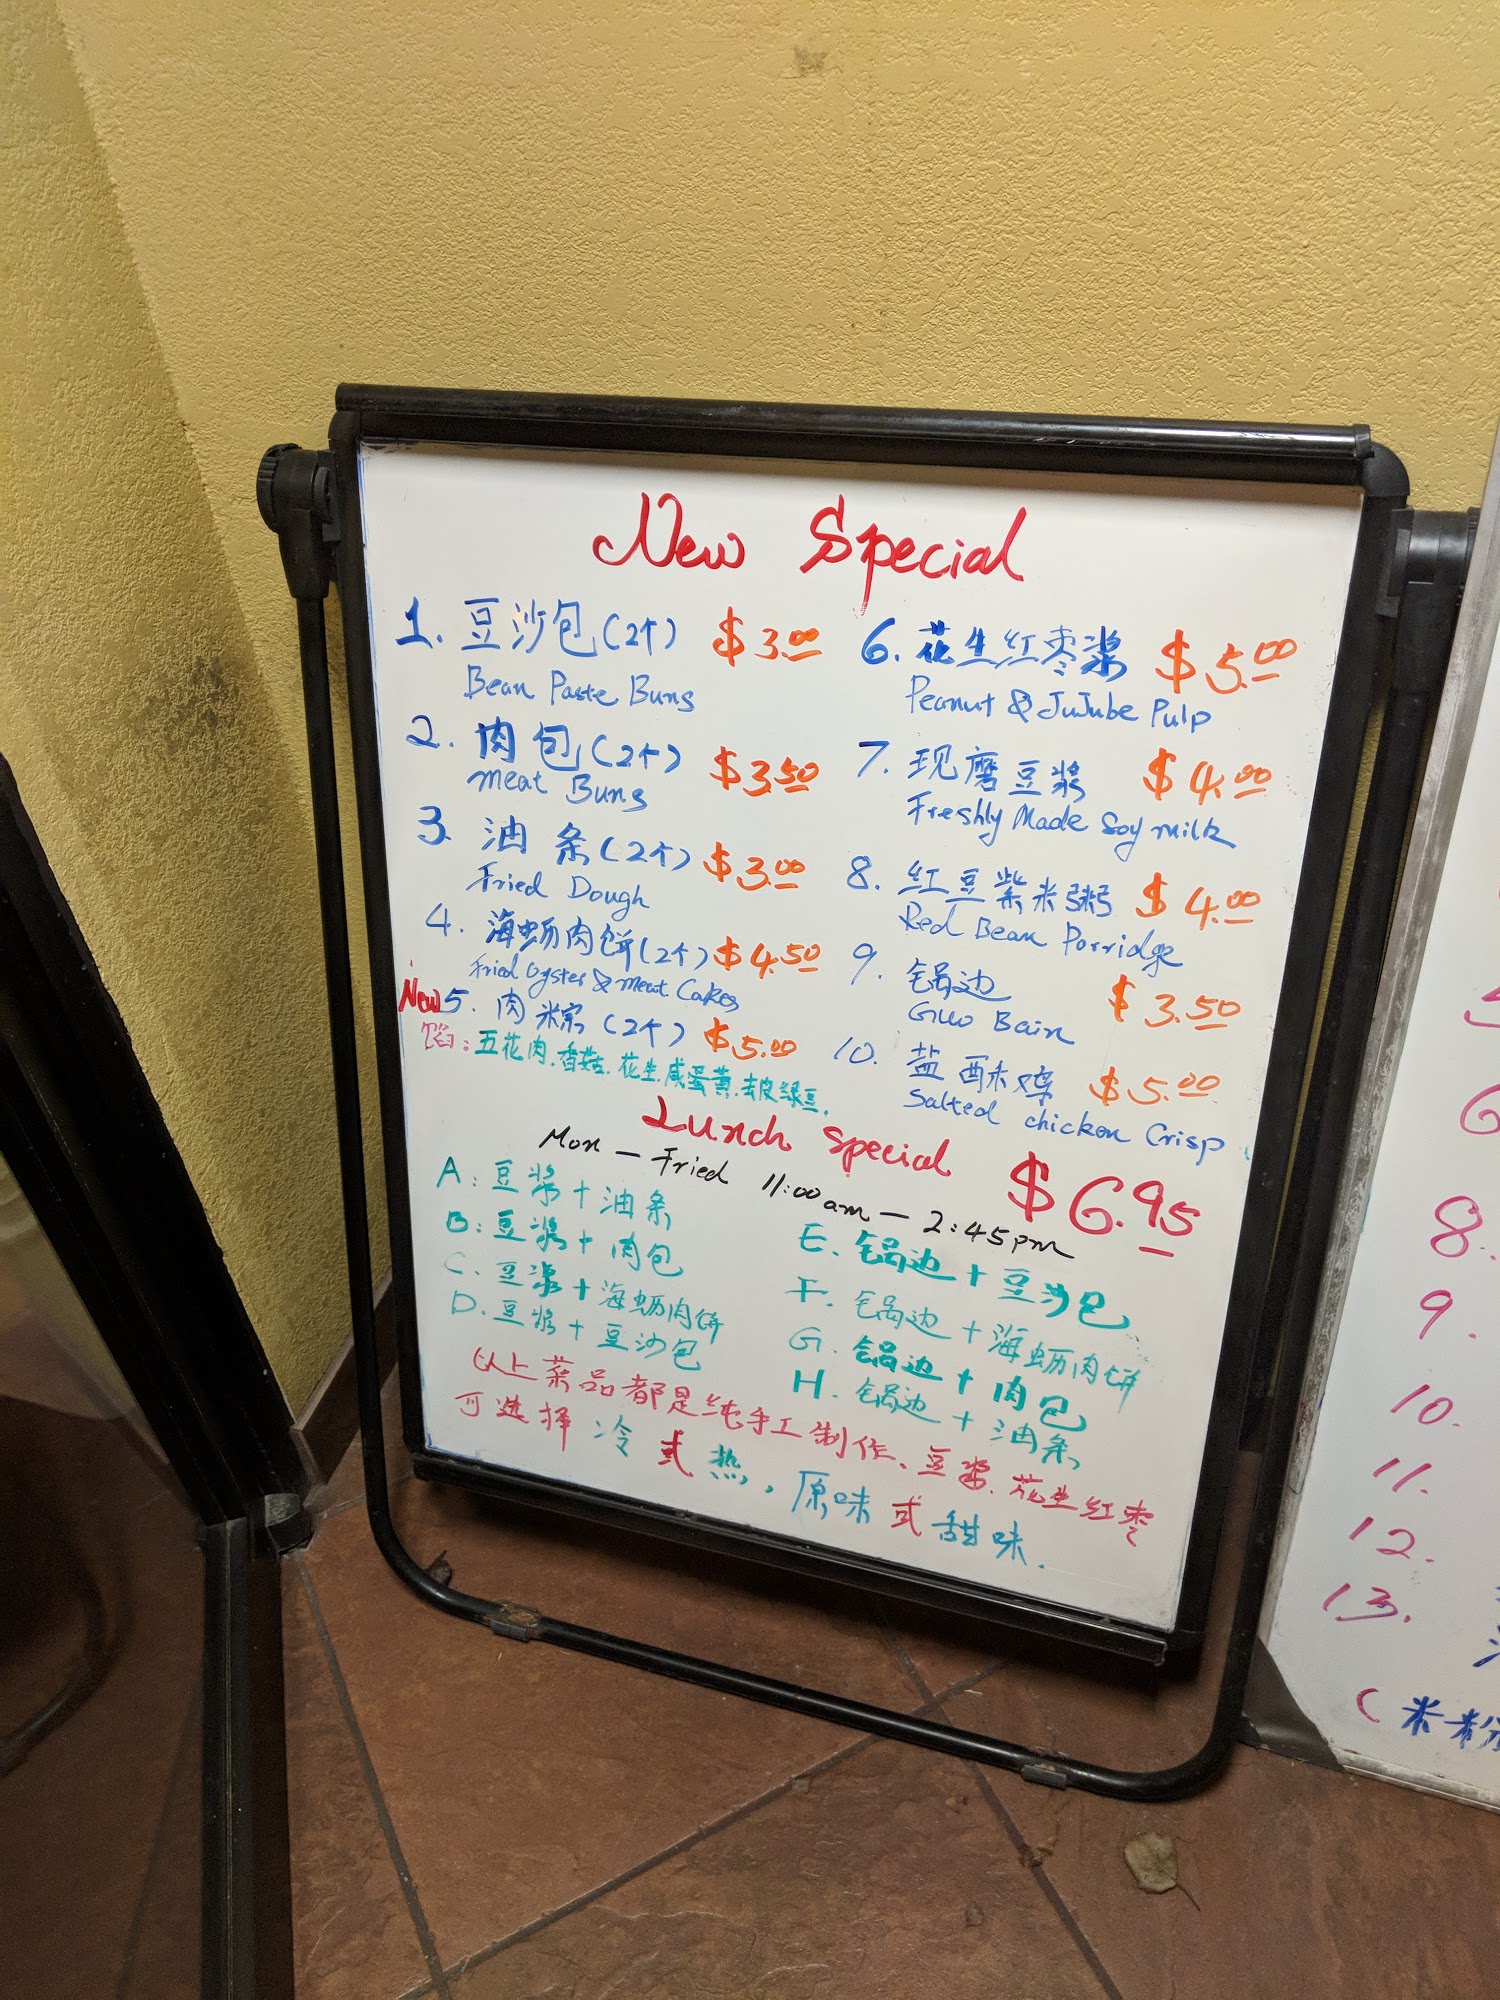 New Special
1. 豆沙包(2个) $3.00
Bean Paste Buns
2. 肉包(2个) $3.50
Meat Buns
3. 油条(2个) $3.00
Fried Dough
4. 海蛎肉饼(2个) $4.50
Fried Oyster & Meat Cakes
New 5. 肉粽(2个) $5.00
馅: 五花肉.香菇.花生.咸蛋黄.去皮绿豆.
6. 花生红枣浆 $5.00
Peanut & JuJube Pulp
7. 现磨豆浆 $4.00
Freshly Made Soy milk
8. 红豆紫米粥 $4.00
Red Bean Porridge
9. 锅边 $3.50
Guo Bain
10. 盐酥鸡 $5.00
Salted chicken Crisp
Lunch special $6.95
Mon - Fried 11:00am - 2:45pm
A: 豆浆+油条
B: 豆浆+肉包
C. 豆浆+海蛎肉饼
D. 豆浆+豆沙包
E. 锅边+豆沙包
F. 锅边+海蛎肉饼
G. 锅边+肉包
H. 锅边+油条
以上菜品都是纯手工制作、豆浆.花生红枣
可选择 冷 或 热, 原味 或 甜味.
6
8.
9.
10.
11.
12.
13.
(米粉